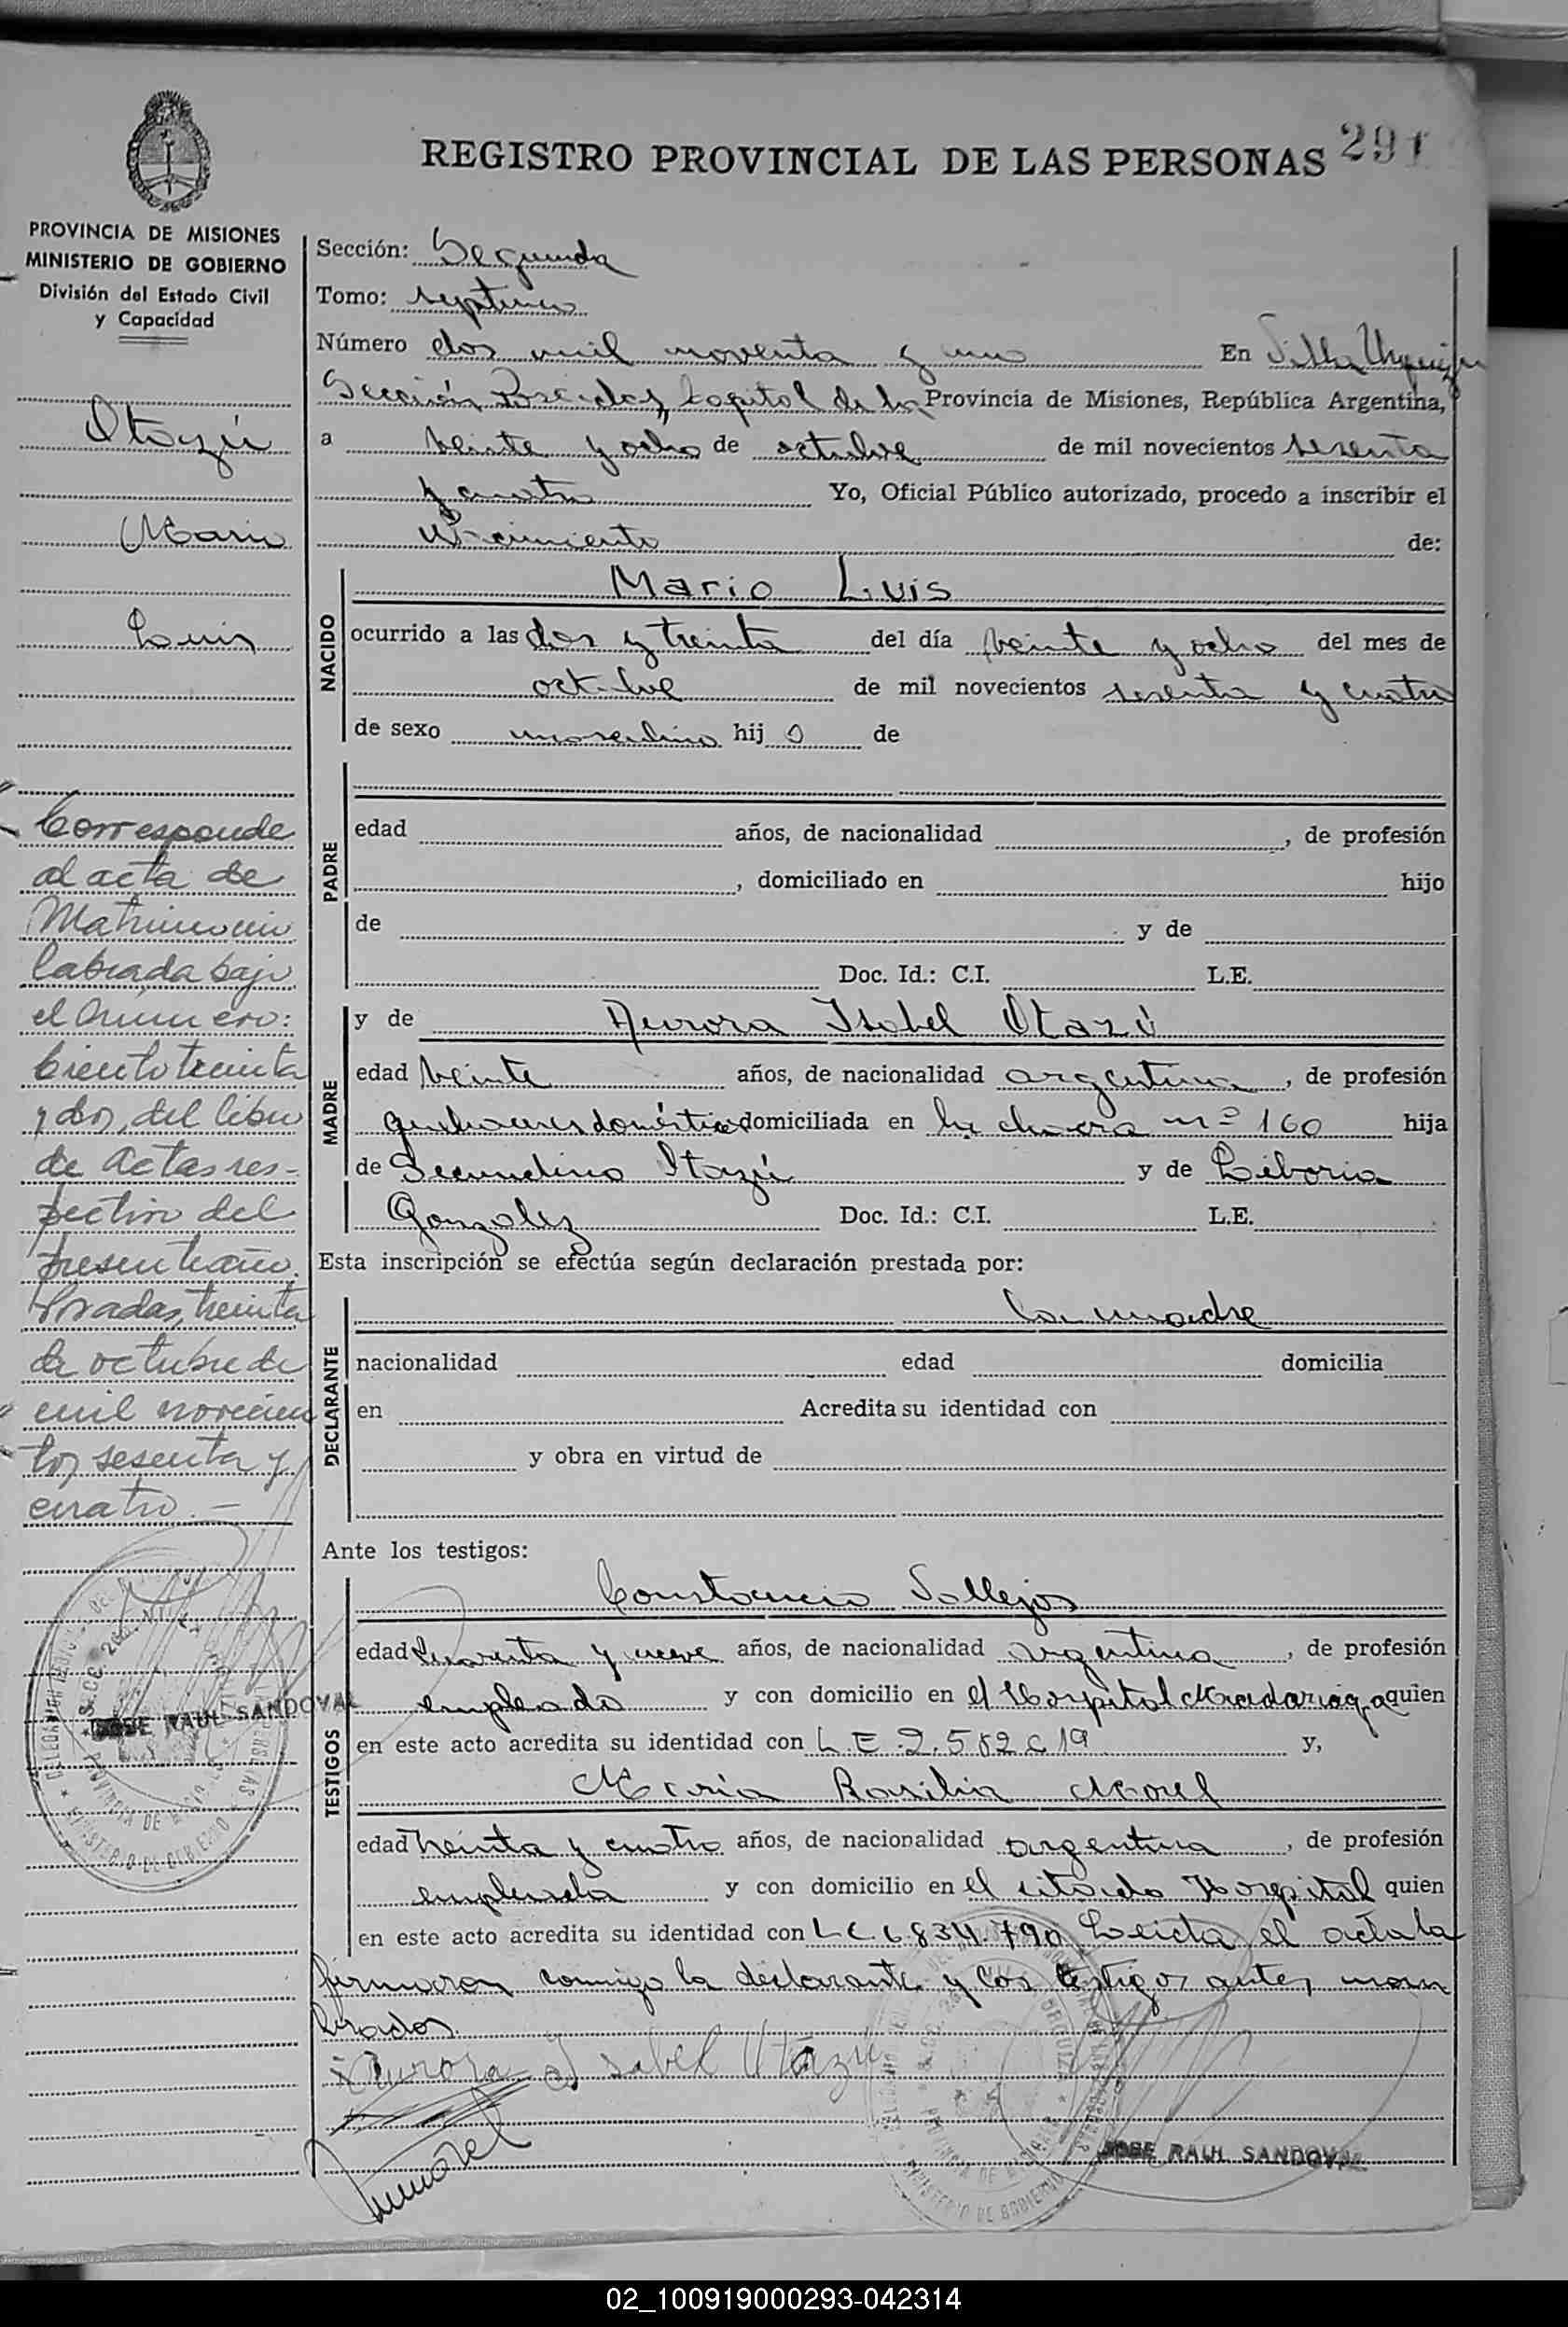 291
REGISTRO PROVINCIAL DE LAS PERSONAS
PROVINCIA DE MISIONES
MINISTERIO DE GOBIERNO
División del Estado Civil
y Capacidad
Otazú
Mario
Luis
Corresponde
al acta de
Matrimonio
labrada bajo
el número:
Ciento treinta
y dos, del libro
de actas res-
pectivo del
presente año.
Posadas, treinta
de octubre de
mil novecien
tos sesenta y
cuatro. —
JOSE RAUL SANDOVAL
Sección: Segunda
Tomo: septimo
Número dos mil noventa y uno En Villa Urquiza
Sección Posadas, Capital de la Provincia de Misiones, República Argentina,
a veinte y ocho de octubre de mil novecientos sesenta
y cuatro Yo, Oficial Público autorizado, procedo a inscribir el
Nacimiento de:
NACIDO
Mario Luis
ocurrido a las dos y treinta del día veinte y ocho del mes de
octubre de mil novecientos sesenta y cuatro
de sexo masculino hijo de
PADRE
edad años, de nacionalidad , de profesión
, domiciliado en hijo
de y de
Doc. Id.: C.I. L.E.
MADRE
y de Aurora Isabel Otazú
edad veinte años, de nacionalidad argentina, de profesión
quehaceres domésticos domiciliada en la chacra nº 160 hija
de Secundino Otazú y de Liboria
Gonzalez Doc. Id.: C.I. L.E.
Esta inscripción se efectúa según declaración prestada por:
DECLARANTE
La madre
nacionalidad edad domicilia
en Acredita su identidad con
y obra en virtud de
Ante los testigos:
TESTIGOS
Constancio Vallejos
edad cuarenta y nueve años, de nacionalidad argentina, de profesión
empleado y con domicilio en el Hospital Madariaga quien
en este acto acredita su identidad con L.E. y,
María Basilia Morel
edad treinta y cuatro años, de nacionalidad argentina, de profesión
empleada y con domicilio en el citado Hospital quien
en este acto acredita su identidad con LC 6.834.790 Leida el acta la
firmaron conmigo la declarante y los testigos antes nom
brados
Aurora Isabel Otazú
JOSE RAUL SANDOVAL
02_100919000293-042314